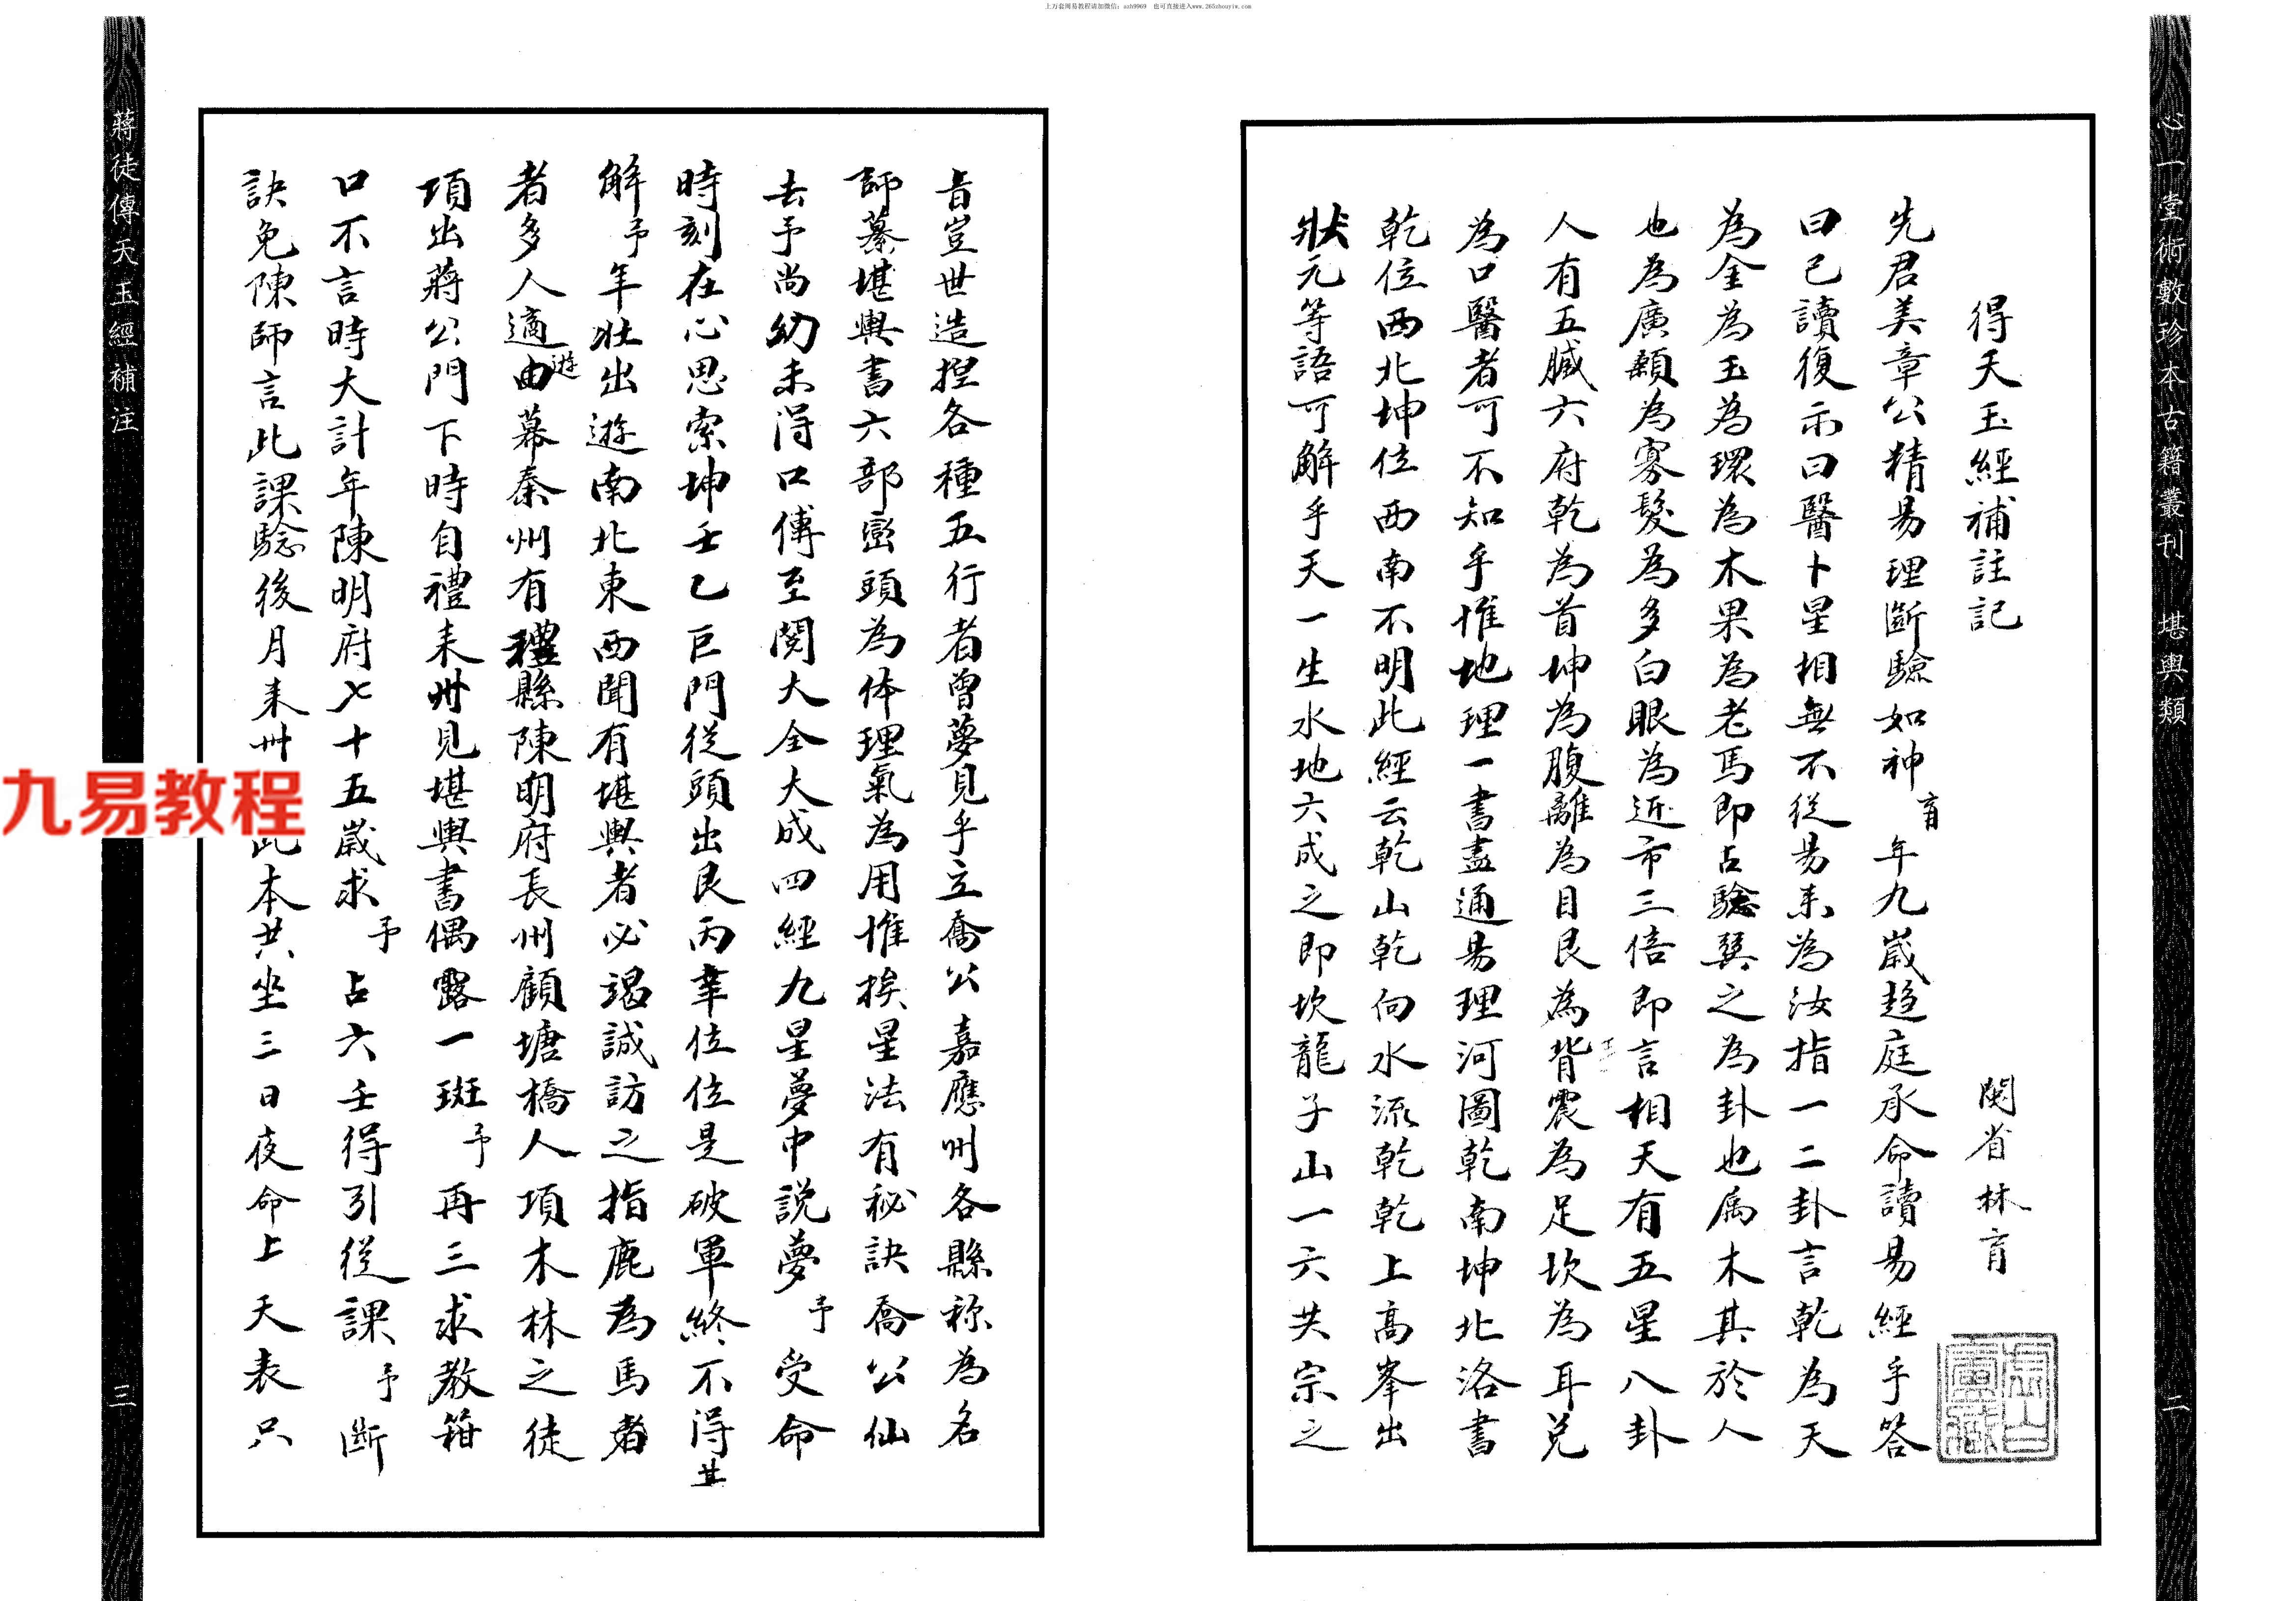 上万套周易教程请加微信：azh9969　也可直接进入www.265zhouyiw.com
心一堂術數珍本古籍叢刊　堪輿類
二
得天玉經補註記　閩省林育
先君美章公精易理斷驗如神育年九歲趋庭承命讀易經乎答
曰已讀復示曰醫卜星相無不從易来為汝指一二卦言乾為天
為金為玉為環為木果為老馬即占驗巽之為卦也属木其於人
也為廣顙為寡髮為多白眼為近市三倍即言相天有五星八卦
人有五臟六府乾為首坤為腹離為目艮為背震為足坎為耳兑
為口醫者可不知乎惟地理一書盡通易理河圖乾南坤北洛書
乾位西北坤位西南不明此經云乾山乾向水流乾乾上高峯出
狀元等語可解乎天一生水地六成之即坎龍子山一六共宗之
旨豈世造捏各種五行者曾夢見乎立喬公嘉應州各縣称為名
師纂堪輿書六部巒頭為体理氣為用惟挨星法有秘訣喬公仙
去予尚幼未得口傳至閱大全大成四經九星夢中說夢予受命
時刻在心思索坤壬乙巨門從頭出艮丙辛位位是破軍終不得其
解予年壯出遊南北東西聞有堪輿者必竭誠訪之指鹿為馬者
者多人適由遊幕秦州有禮縣陳明府長州顧塘橋人項木林之徒
項出蔣公門下時自禮来卅見堪輿書偶露一斑予再三求教箝
口不言時大計年陳明府七十五歲求予占六壬得引從課予斷
訣免陳師言此課驗後月来卅此本共坐三日夜命上天表只
蔣徒傳天玉經補注
三
九易教程